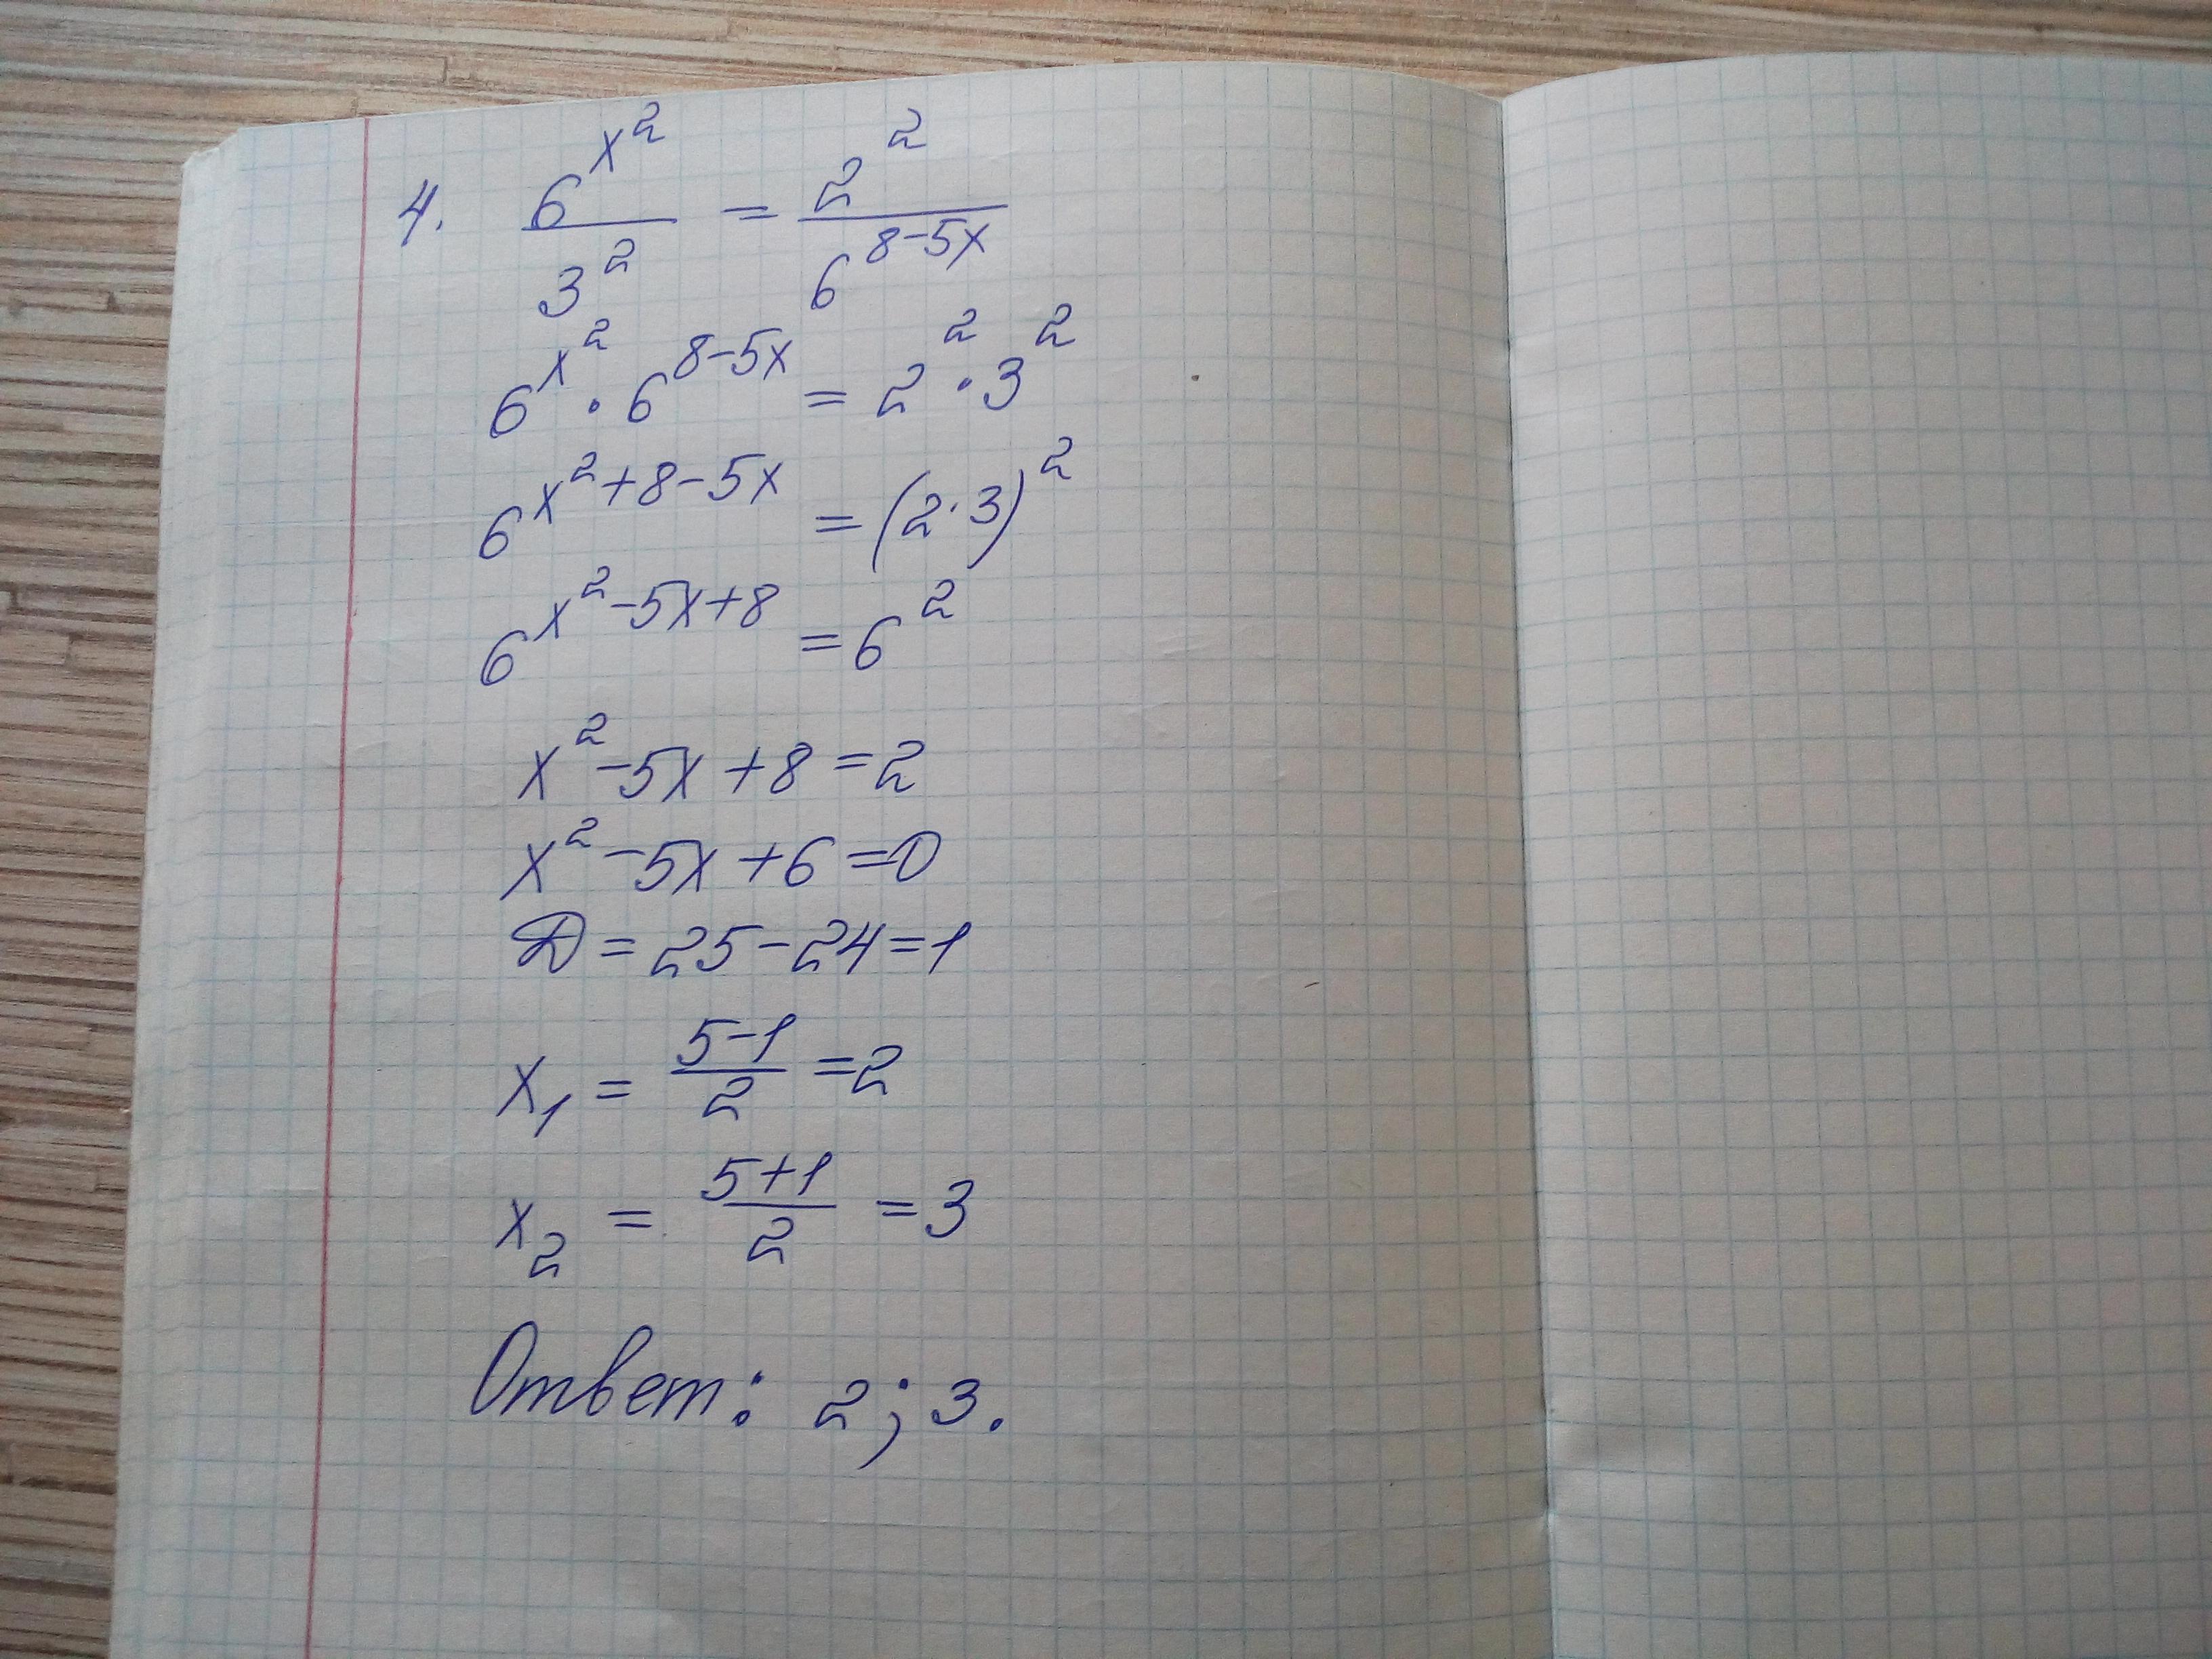 4. 6^{x^2}/3^2 = 2^2/6^{8-5x}
6^{x^2} · 6^{8-5x} = 2^2 · 3^2
6^{x^2+8-5x} = (2·3)^2
6^{x^2-5x+8} = 6^2
x^2-5x+8=2
x^2-5x+6=0
D=25-24=1
x_1 = (5-1)/2 =2
x_2 = (5+1)/2 =3
Ответ: 2; 3.